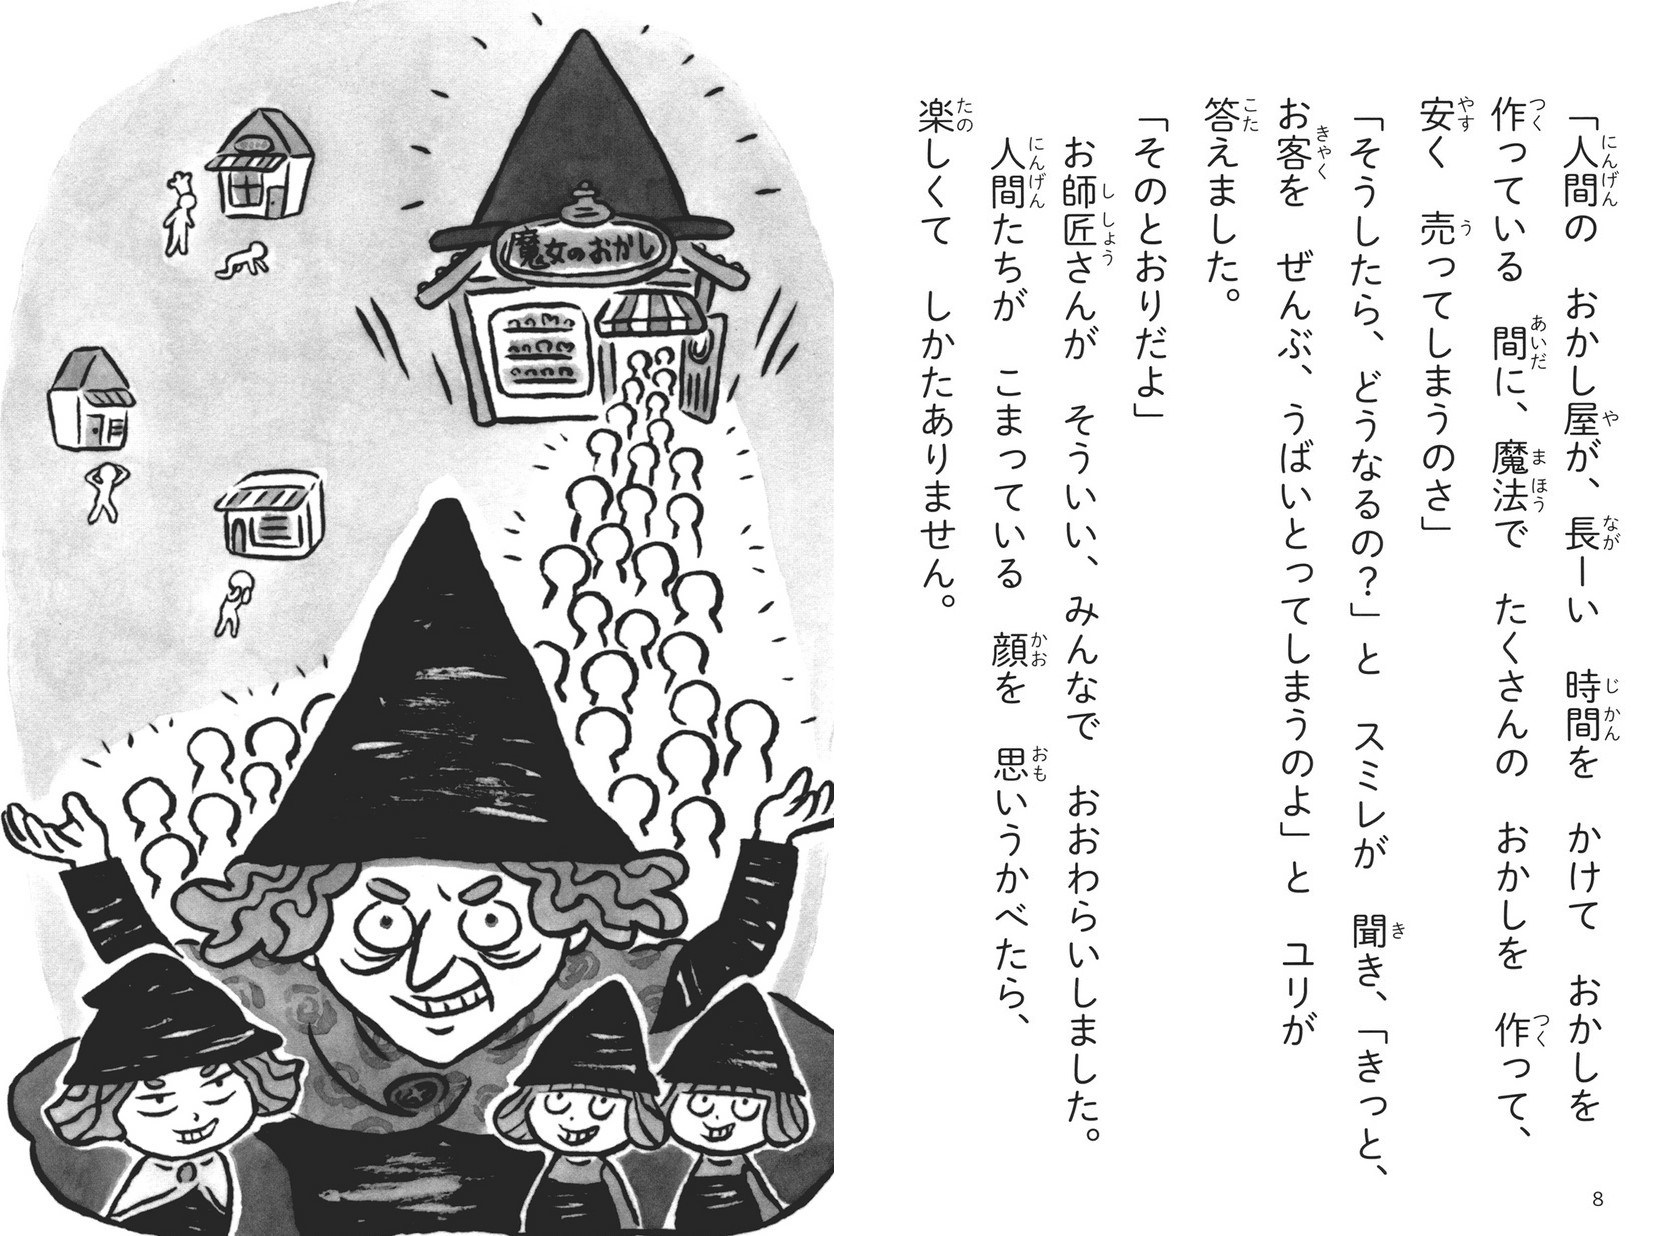 「人間の　おかし屋が、長ーい　時間を　かけて　おかしを
作っている　間に、魔法で　たくさんの　おかしを　作って、
安く　売ってしまうのさ」
「そうしたら、どうなるの？」と　スミレが　聞き、「きっと、
お客を　ぜんぶ、うばいとってしまうのよ」と　ユリが
答えました。
「そのとおりだよ」
　お師匠さんが　そういい、みんなで　おおわらいしました。
　人間たちが　こまっている　顔を　思いうかべたら、
楽しくて　しかたありません。
8
魔女のおかし